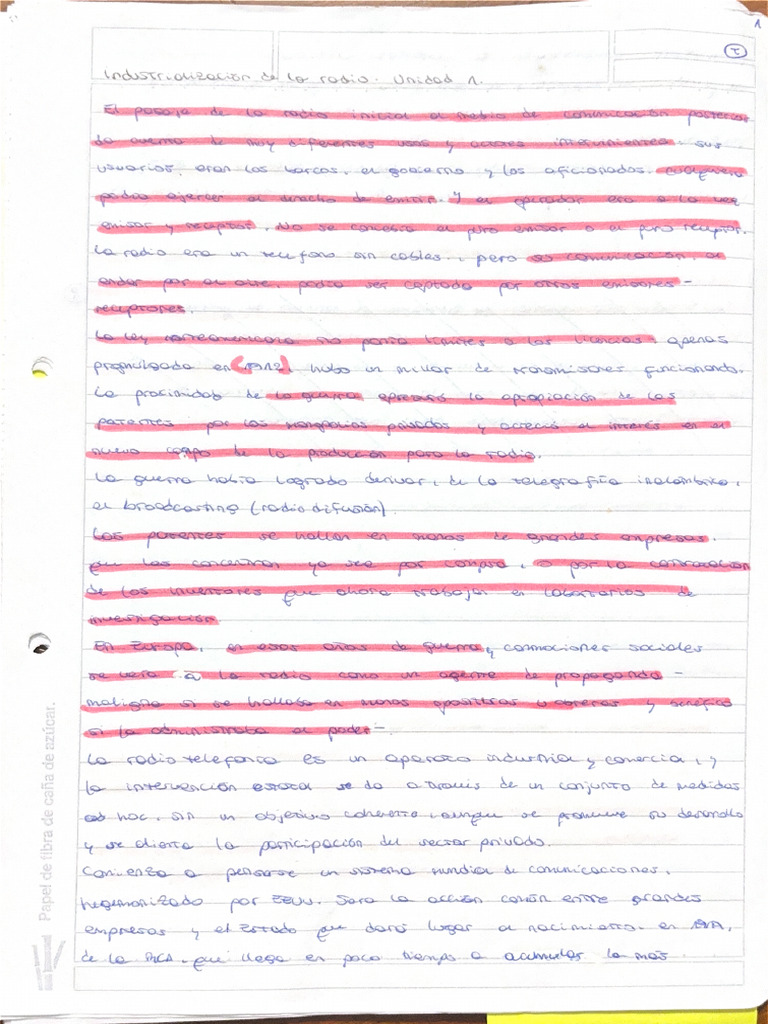 1
I
Industrialización de la radio. Unidad 1.
El pasaje de la radio inicial al medio de comunicación posterior
da cuenta de muy diferentes usos y actores intervinientes. sus
usuarios, eran los barcos, el gobierno y los aficionados. cualquiera
podía ejercer el derecho de emitir. Y el operador era a la vez
emisor y receptor. No se concebía al puro emisor o al puro receptor.
La radio era un telefono sin cables, pero su comunicación, al
andar por el aire, podía ser captada por otros emisores-
receptores.
La ley norteamericana no ponía límites a las licencias, apenas
promulgada en (1912), hubo un millar de transmisores funcionando.
La proximidad de la guerra apresuró la apropiación de las
patentes por los monopolios privados y acreció el interés en el
nuevo campo de la producción para la radio.
La guerra había logrado derivar, de la telegrafía inalámbrica,
el broadcasting (radiodifusión).
Las patentes se hallan en manos de grandes empresas,
que las concentran ya sea por compra, o por la contratación
de los inventores que ahora trabajan en laboratorios de
investigación
En Europa, en esos años de guerra, y conmociones sociales
se verá a la radio como un agente de propaganda -
maligna si se hallaba en manos opositoras u obreras y benéfica
si la administraba el poder-.
La radiotelefonía es un aparato industria y comercia, y
la intervención estatal se da a través de un conjunto de medidas
ad hoc, sin un objetivo coherente, aunque se promueve su desarrollo
y se alienta la participación del sector privado.
Comienza a pensarse un sistema mundial de comunicaciones,
hegemonizado por EEUU. Sera la acción común entre grandes
empresas y el Estado que dará lugar al nacimiento, en
de la RCA, que llega en poco tiempo a acumular la más
Papel de fibra de caña de azúcar.